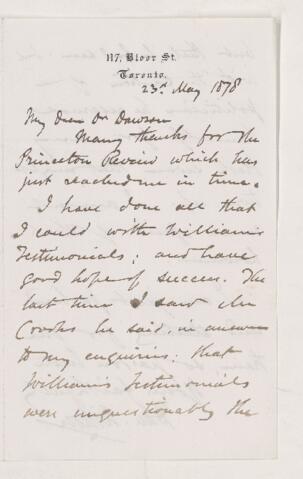 117, Bloor St.
Toronto.
23rd May 1878
My dear Dr Dawson
Many thanks for the
Princeton Review which has
just reached me in time.
I have done all that
I could with William's
Testimonials; and have
good hope of success. The
last time I saw Mr
Crooks he said, in answer
to my enquiries; that
William's Testimonials
were unquestionably the